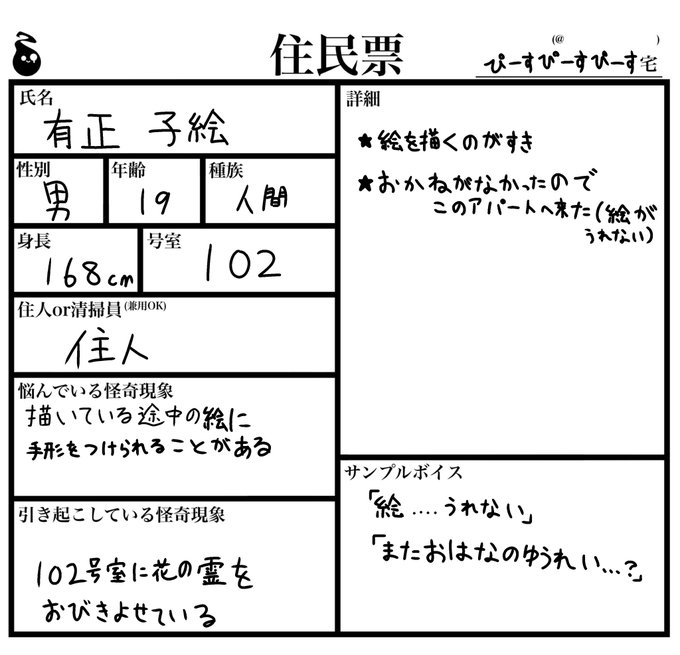 住民票
(@ )
ぴーすぴーすぴーす宅
氏名
有正 子絵
性別
男
年齢
19
種族
人間
身長
168cm
号室
102
住人or清掃員(兼用OK)
住人
悩んでいる怪奇現象
描いている途中の絵に
手形をつけられることがある
引き起こしている怪奇現象
102号室に花の霊を
おびきよせている
詳細
★絵を描くのがすき
★おかねがなかったので
このアパートへ来た(絵が
うれない)
サンプルボイス
「絵....うれない」
「またおはなのゆうれい...?」